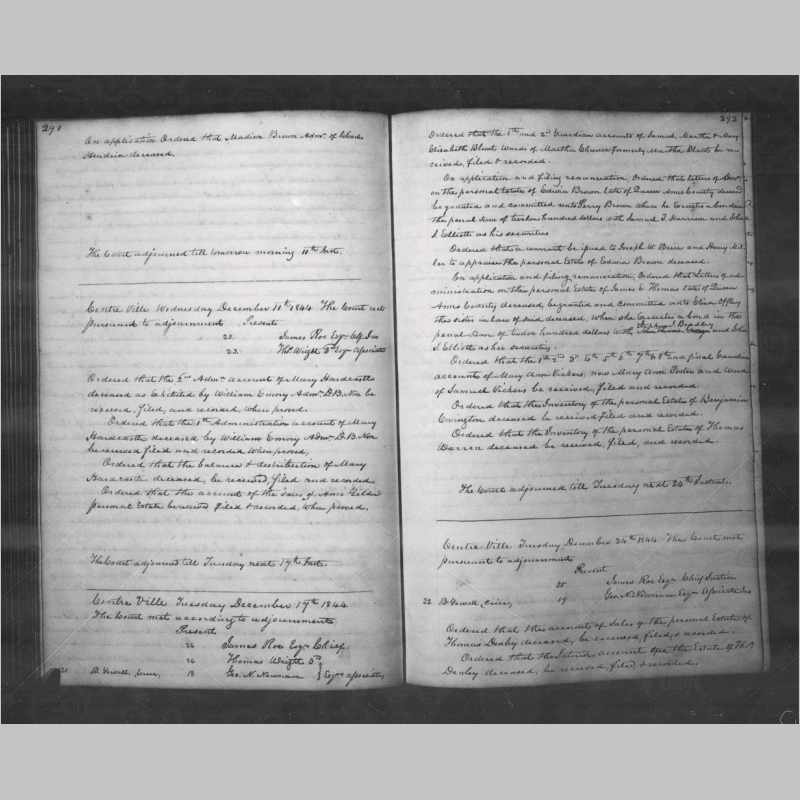 291
On application Ordered that Madison Brown Admr. of Charles
deceased.
The Court adjourned till tomorrow morning 11th Inst.
Centre Ville Wednesday December 11th 1844 The Court met
pursuant to adjournment Present
25. James Roe Esqr Chf Jus
23. Thos. Wright 3d Esqr Associate
Ordered that the 2nd Admn. account of Mary Hardcastle
deceased as Exhibited by William Emory Admr. D. B. Non be
received, filed, and recorded, when proved.
Ordered that the 1st Administration account of Mary
Hardcastle deceased by William Emory Admr D. B. Non
be received filed and recorded when proved,
Ordered that the balance & distribution of Mary
Hardcastle deceased, be received, filed and recorded
Ordered that the account of the sales of Ann
personal Estate be received filed & recorded, when proved.
The Court adjourned till Tuesday next 17th Inst.
Centre Ville Tuesday December 17th 1844
The Court met according to adjournment
Present
26 James Roe Esqr Chief
24 Thomas Wright 3d
21 B. Yewell, 18 Geo. N. Newnam } Esqrs associates
292
Ordered that the 1st and 2d Guardian accounts of Samuel, Martha & Mary
Elizabeth Blunt Wards of Martha formerly Martha Blunt be re
ceived, filed & recorded.
On application and filing renunciation, Ordered that letters of Adm.
on the personal Estate of Edwin Brown late of Queen Anns County deceased
be granted and committed unto Perry Brown when he Executes a bond in
the penal sum of twelve hundred dollars with Samuel T. Harrison and
S. Elliott as his securities
Ordered that a warrant be issued to Joseph W. and Henry Mil
ler to appraise the personal Estate of Edwin Brown deceased.
On application and filing, renunciation, Ordered that Letters of ad
ministration on the personal Estate of James E. Thomas late of Queen
Anns County deceased, be granted and committed unto Eliza
the sister in law of said deceased, when she Executes a bond in the
penal sum of hundred dollars with Stephen J. Bradley and
S. Elliott as her security.
Ordered that the 1st 2d 3d 4th 5th 6th 7th & 8th and final Guardian
accounts of Mary Ann Vickers, now Mary Ann and Ward
of Samuel Vickers be received, filed and recorded.
Ordered that the Inventory of the personal Estate of Benjamin
Covington deceased be received filed and recorded.
Ordered that the Inventory of the personal Estate of Thomas
Warren deceased be received, filed, and recorded.
The Court adjourned till Tuesday next 24th Instant.
Centre Ville Tuesday December 24th 1844 The Court met
pursuant to adjournment
Present
25 James Roe Esqr Chief Justice
22 B. Yewell, 19 Geo. N. Newnam Esqr Associate
Ordered that the account of Sales of the personal Estate of
Thomas Denby deceased, be received, filed, & recorded.
Ordered that the account of the Estate of Thos
Denby deceased, be received, filed & recorded.